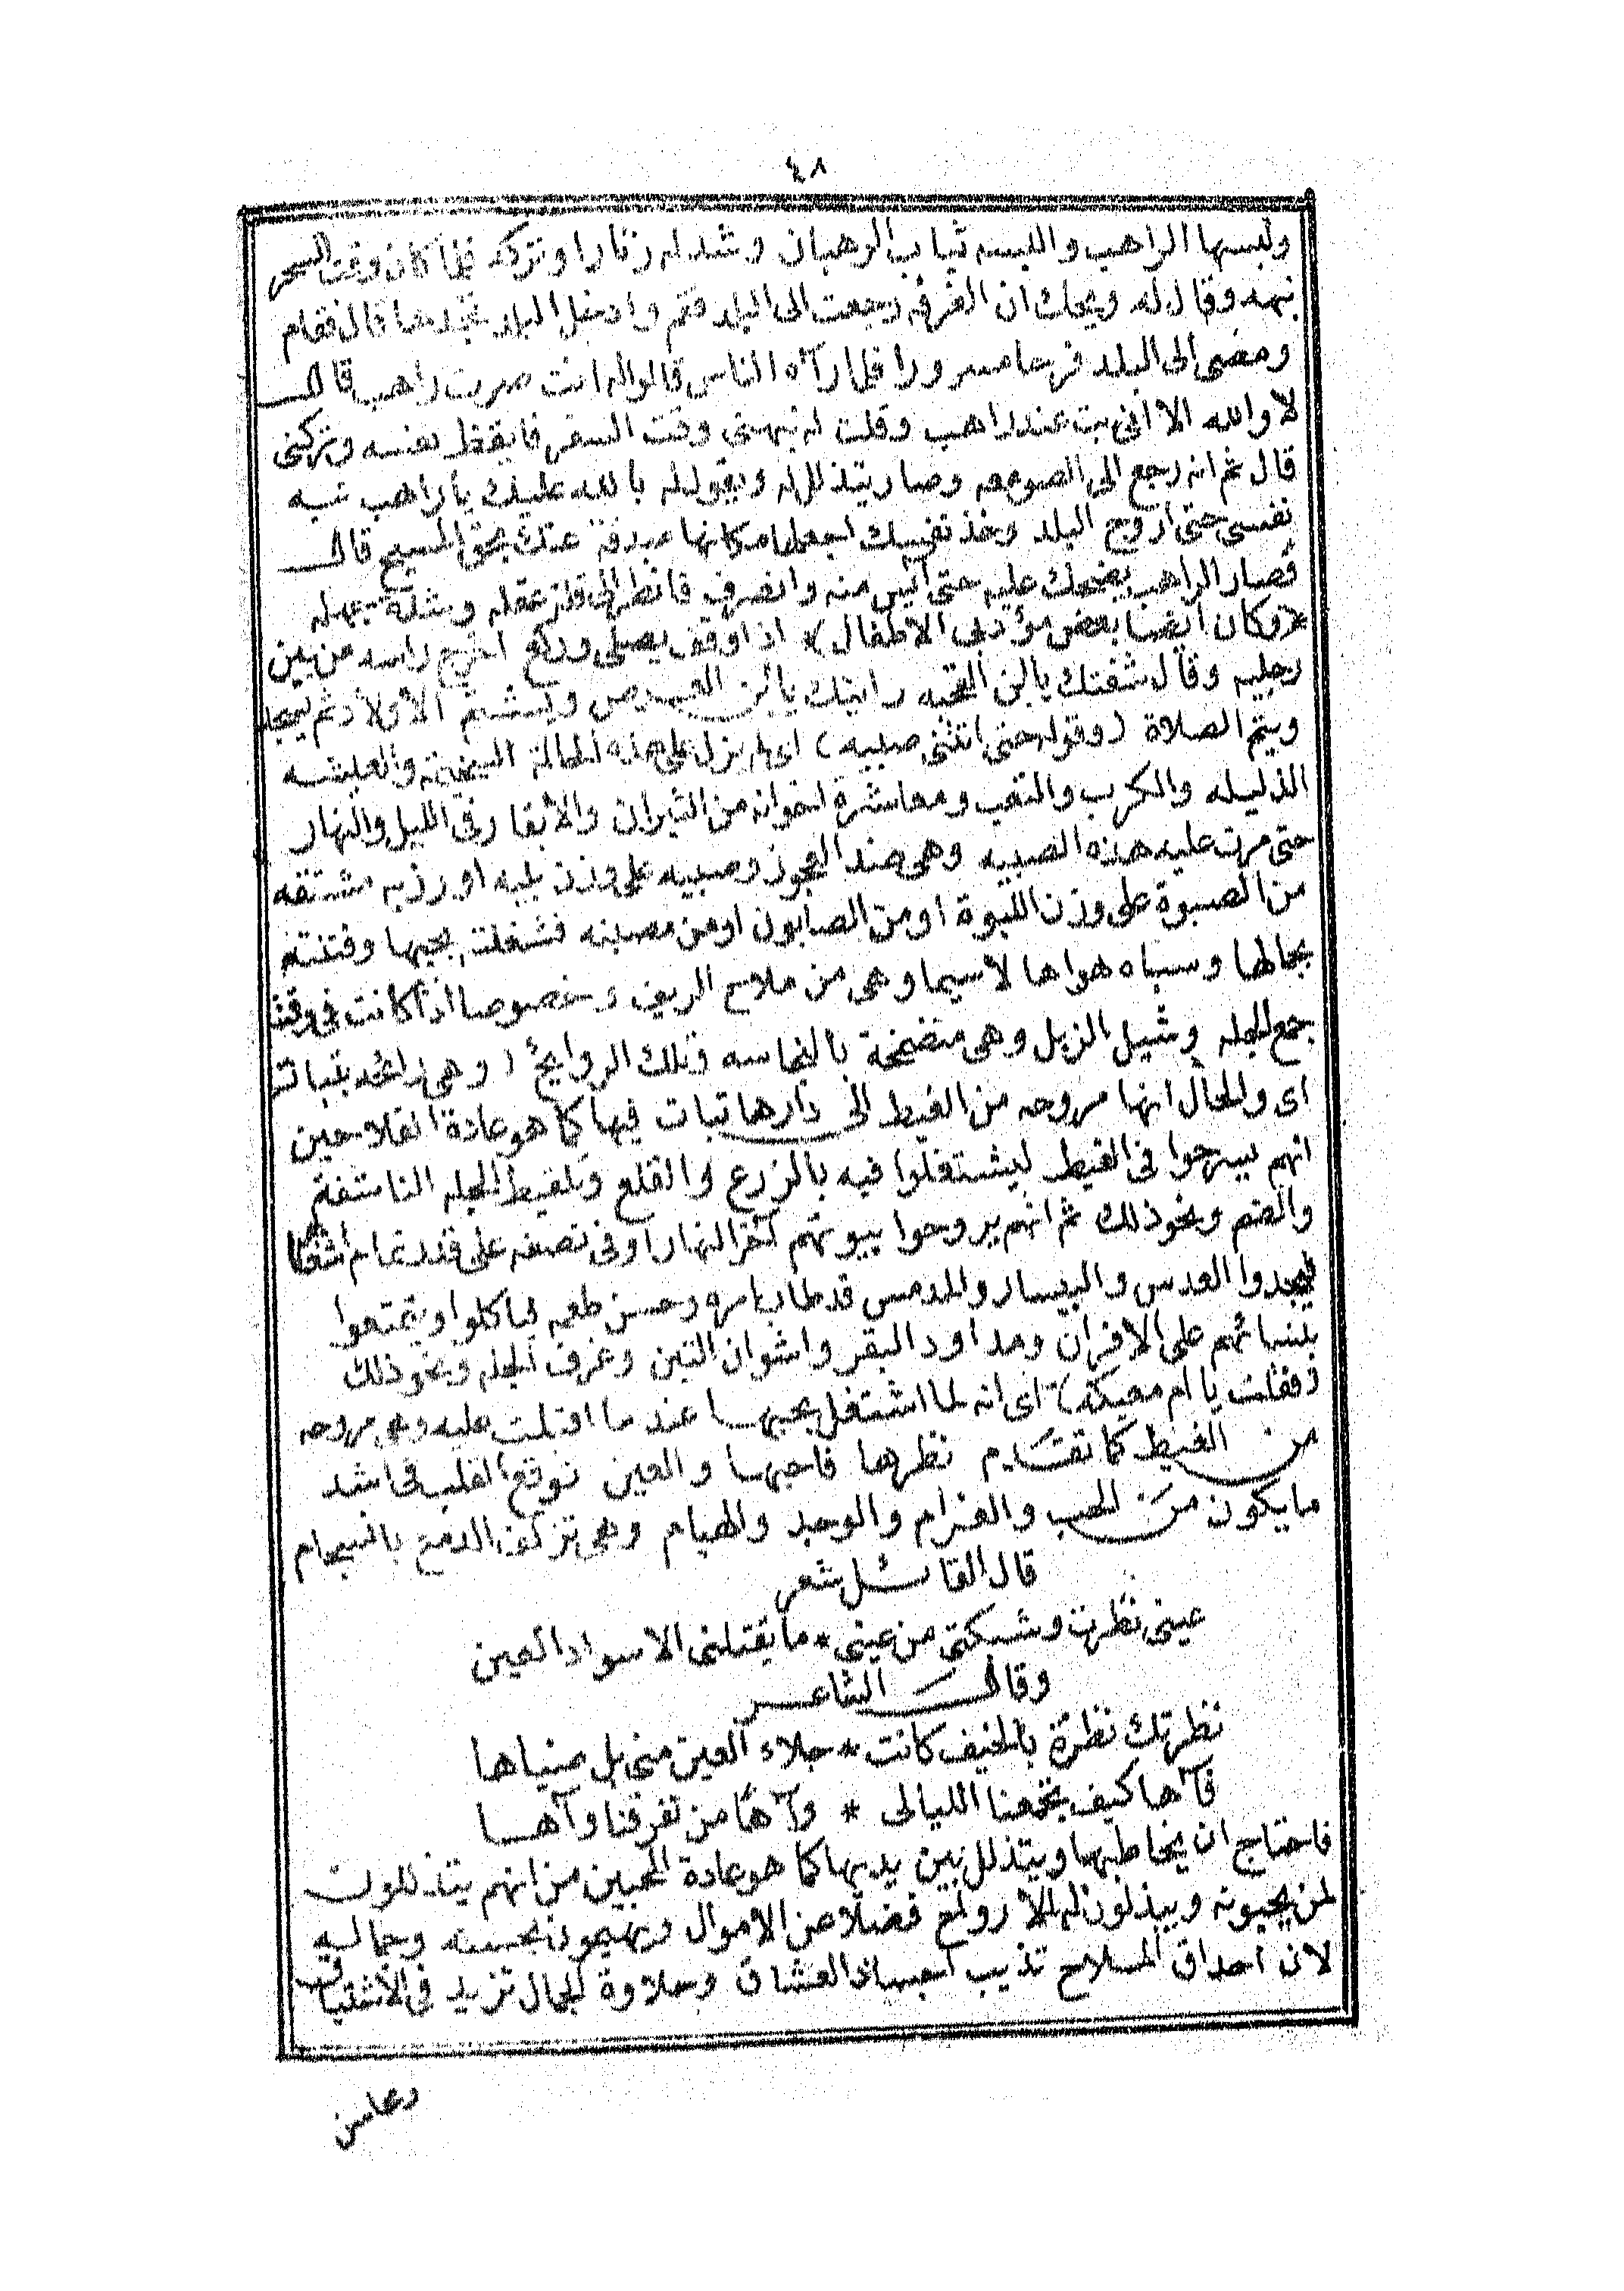 ٤٨
ولبسها الراهب والبسه ثياب الرهبان وشد له زنارا وتركه فلما كان وقت السحر
نبهه وقال له ويحك ان الفرقه رجعت الى البلد فقم وادخل البلد تجدها قال فقام
ومضى الى البلد فرحا مسرورا فلما رآه الناس قالوا له انت صرت راهب قال
لا والله الا أنى بت عند راهب وقلت له نبهنى وقت السفر فايقظ نفسه وتركنى
قال ثم انه رجع الى الصومعه وصار يتذلل له ويقول له بالله عليك يا راهب نبه
نفسى حتى اروح البلد وخذ نفسك اجعلها مكانها صدقة عنك بحق المسيح قال
فصار الراهب يضحك عليه حتى آيس منه وانصرف فانظر الى قلة عقله وشدة جهله
(وكان ايضا بعض مؤدبى الاطفال) اذا وقف يصلى وركع اخرج راسه من بين
رجليه وقال شفتك يا ابن القحبه رايتك يا ابن ويشتم الاولاد ثم يسجد
ويتم الصلاة (وقوله حتى اتتنى صبيه) اى لم يزل على هذه الحالة والعيشه
الذليله والكرب والتعب ومعاشرة اخوانه من الثيران والأبقار فى الليل والنهار
حتى مرت عليه هذه الصبيه وهى ضد العجوز وصبيه على وزن بليه او رزيه مشتقه
من الصبوة على وزن اللبوة او من الصابون او من مصبنه فشغلته بحبها وفتنته
بجمالها وسباه هواها لا سيما وهى من ملاح الريف وخصوصا اذا كانت فى وقت
جمع الجله وشيل الزبل وهى متضخمة بالنجاسه وتلك الروايح (وهى رائحه بتباتر
اى والحال انها مروحه من الغيط الى دارها تبات فيها كما هو عادة الفلاحين
انهم يسرحوا فى الغيط ليشتغلوا فيه بالزرع والقلع وتلقيط الجله الناشفة
والضم ونحو ذلك ثم انهم يروحوا بيوتهم آخر النهار او فى نصفه على قدر تمام اشغالهم
فيجدوا العدس والبيسار والمدمس قد طاب امره وحسن طعمه فياكلوا ويتمتعوا
بنسائهم على الافران ومداود البقر واشوان التبن وغرف الجله ونحو ذلك
(فقلت يا ام معيكه) اى انه لما اشتغل بحبها عند ما اقبلت عليه وهى مروحه
من الغيط كما تقدم نظرها فاحبها والعين توقع القلب فى اشد
ما يكون من الحب والغرام والوجد والهيام وهى تزرف الدمع بانسجام
قال القائل شعر
عينى نظرت وشبكتى من عينى * ما يقتلنى الا سواد العين
وقال الشاعر
نظرتك نظرة بالخيف كانت * جلاء العين منى بل ضياها
فآها كيف تجمعنا الليالى * وآها من تفرقنا وآها
فاحتاج ان يخاطبها ويتذلل بين يديها كما هو عادة المحبين من انهم يتذللون
لمن يحبونه ويبذلون له الارواح فضلا عن الاموال ويهيمون بحسنه وجماله
لان احداق الملاح تذيب اجساد العشاق وحلاوة الجمال تزيد فى الاشتياق